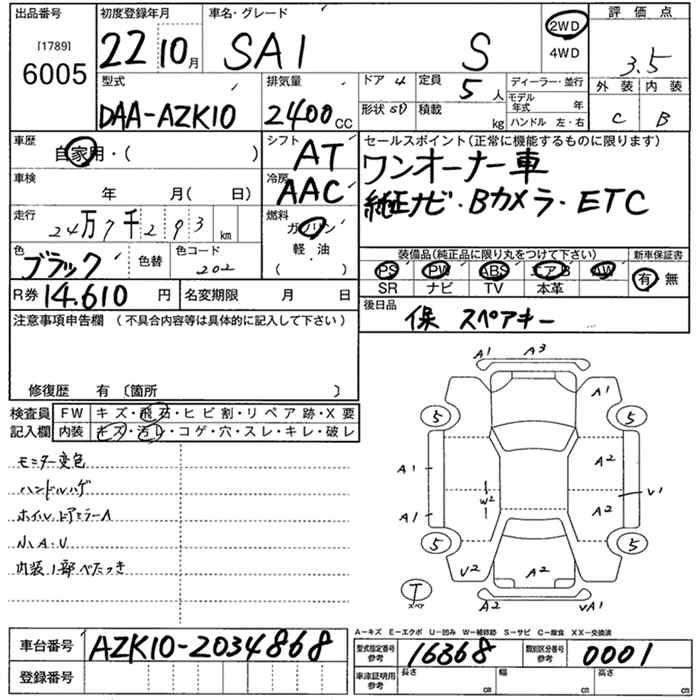 出品番号 初度登録年月 車名・グレード 2WD 評価点
[1789] 22 10月 SAI S 4WD 3.5
6005
型式 排気量 ドア 4 定員 5人 ディーラー・並行 外装 内装
DAA-AZK10 2400CC 形状 SD 積載 kg モデル年式 年 C B
ハンドル 左・右
車歴 自家用・( ) シフト AT セールスポイント(正常に機能するものに限ります)
車検 年 月( 日) 冷房 AAC ワンオーナー車
純正ナビ・Bカメラ・ETC
走行 24万7千293km 燃料 ガソリン
色 ブラック 色替 色コード 202 軽・油 ( )
装備品(純正品に限り丸をつけて下さい) 新車保証書
PS PW ABS エアB AW 有・無
SR ナビ TV 本革
R券 14.610円 名変期限 月 日
後日品 保 スペアキー
注意事項申告欄 (不具合内容等は具体的に記入して下さい)
修復歴 有 〔箇所 〕
検査員 FW キズ・飛石・ヒビ割・リペア跡・X要
記入欄 内装 キズ・汚レ・コゲ・穴・スレ・キレ・破レ
モニター変色
ハンドルハゲ
ホイル、ドアミラーA
小A・U
内装1部べたつき
A1 A3
A1
5 5
A1 A2
W2 U1
A1 A2
5 5
U2 A2
T
スペア
A2 UA1
A-キズ E-エクボ U-凹み W-補修跡 S-サビ C-腐食 XX-交換済
車台番号 AZK10-2034868 型式指定番号 参考 16368 類別区分番号 参考 0001
登録番号 車庫証明用 参考 長さ cm 幅 cm 高さ cm